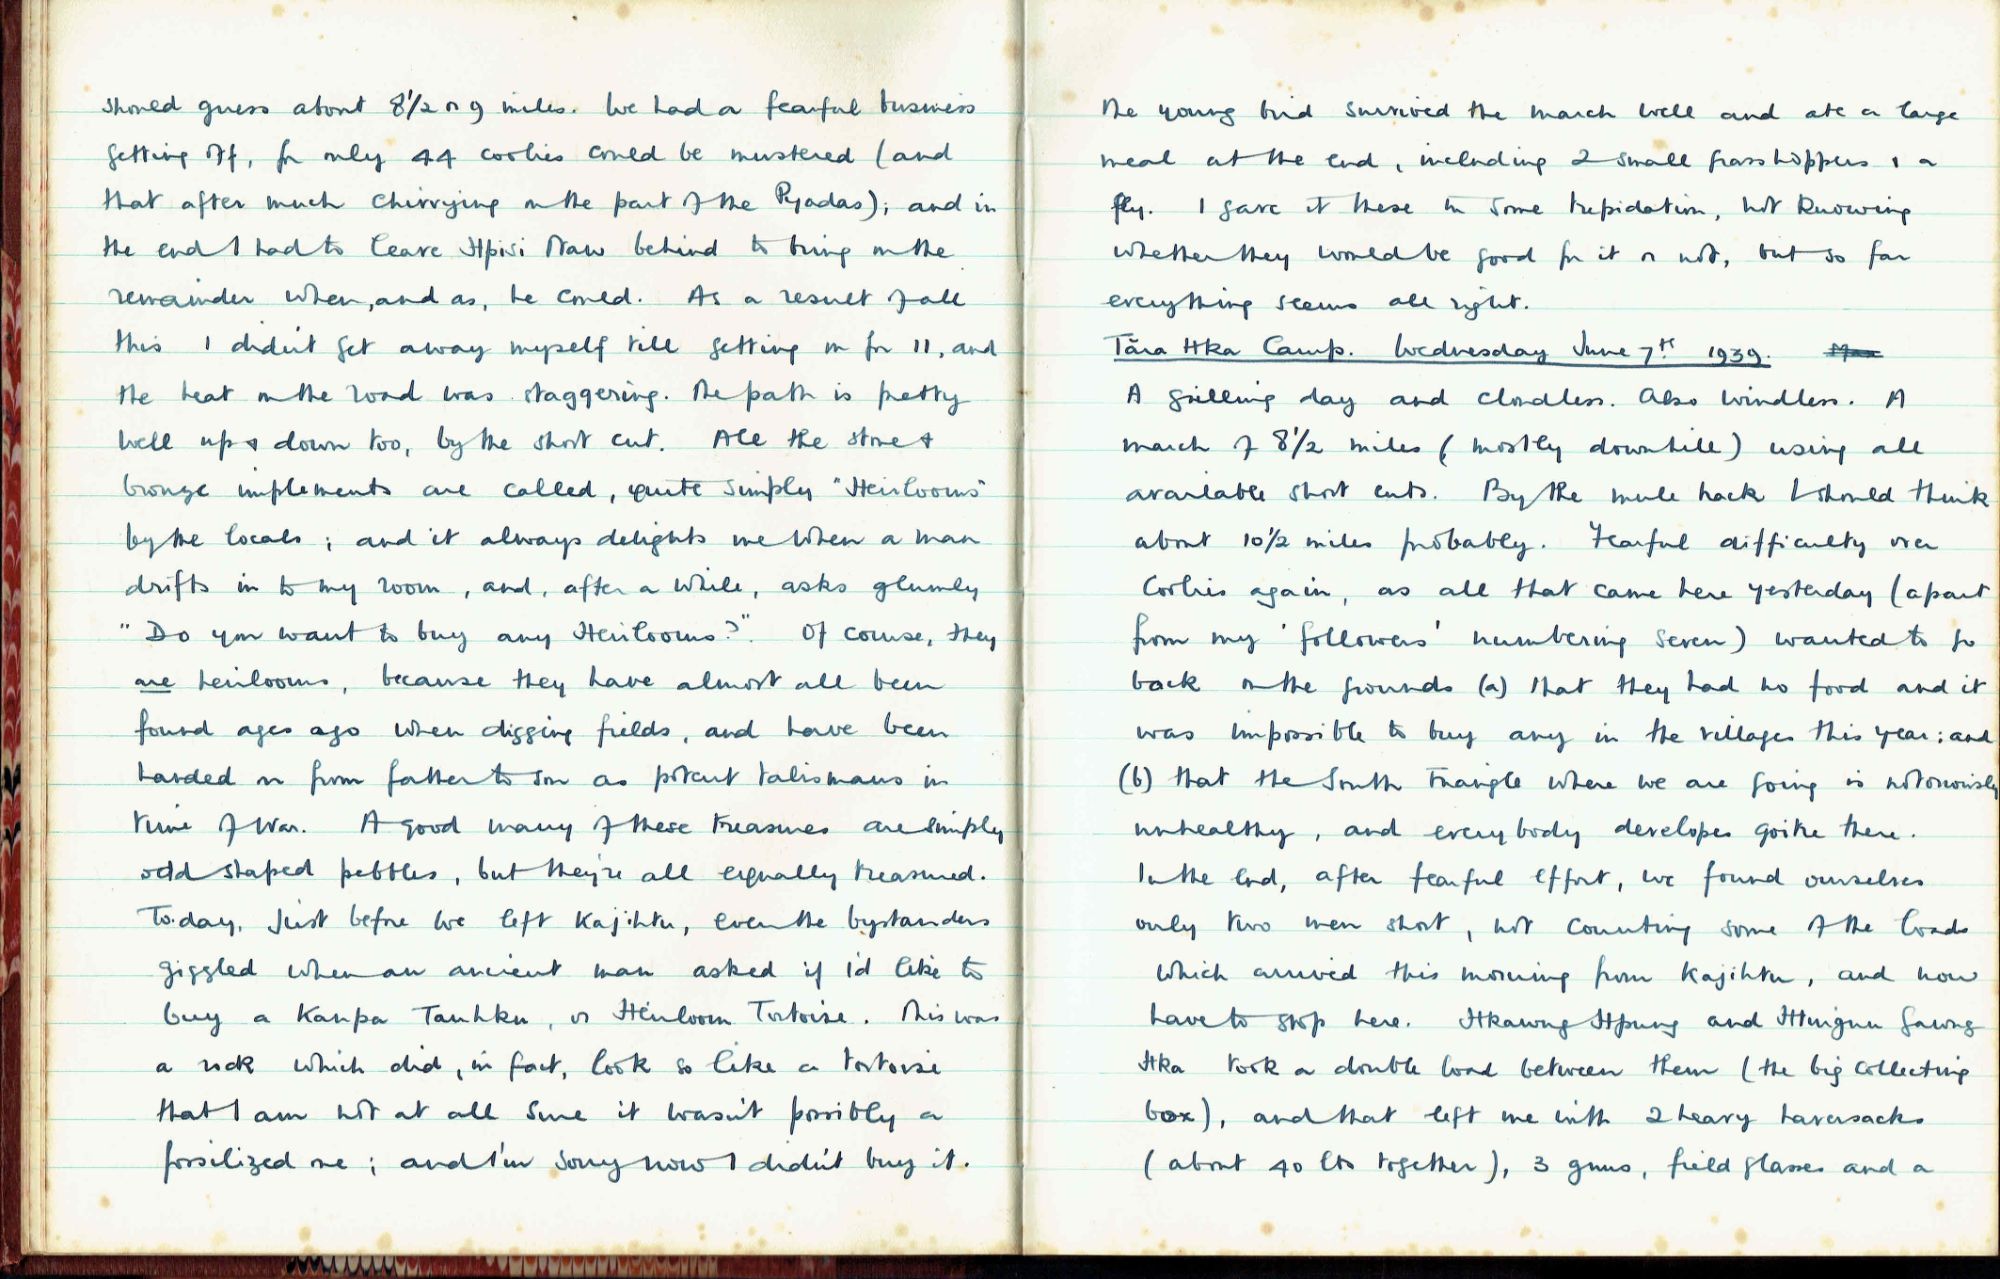 should guess about 8 1/2 or 9 miles. We had a fearful business
getting off, for only 44 coolies could be mustered (and
that after much chivvying on the part of the Pyadas); and in
the end I had to leave Hpisi Naw behind to bring on the
remainder when, and as, he could. As a result of all
this I didn't get away myself till getting on for 11, and
the heat on the road was staggering. The path is pretty
well up & down too, by the short cut. All the stone &
bronze implements are called, quite simply "Heirlooms"
by the locals; and it always delights me when a man
drifts in to my room, and, after a while, asks glumly
"Do you want to buy any Heirlooms?". Of course, they
are heirlooms, because they have almost all been
found ages ago when digging fields, and have been
handed on from father to son as potent talismans in
time of war. A good many of these treasures are simply
odd shaped pebbles, but they're all equally treasured.
Today, just before we left Kajihtu, even the bystanders
giggled when an ancient man asked if I'd like to
buy a Kanpa Tauhku, or Heirloom Tortoise. This was
a rock which did, in fact, look so like a tortoise
that I am not at all sure it wasn't possibly a
fossilized one; and I'm sorry now I didn't buy it.
The young bird survived the march well and ate a large
meal at the end, including 2 small grasshoppers & a
fly. I gave it these in some trepidation, not knowing
whether they would be good for it or not, but so far
everything seems all right.
Tāra Hka Camp. Wednesday June 7th 1939.
A grilling day and cloudless. Also windless. A
march of 8 1/2 miles (mostly downhill) using all
available short cuts. By the mule track I should think
about 10 1/2 miles probably. Fearful difficulty over
Coolies again, as all that came here yesterday (apart
from my 'followers' numbering seven) wanted to go
back on the grounds (a) that they had no food and it
was impossible to buy any in the villages this year; and
(b) that the South Triangle where we are going is notoriously
unhealthy, and everybody developes goitre there.
In the end, after fearful effort, we found ourselves
only two men short, not counting some of the loads
which arrived this morning from Kajihtu, and now
have to stop here. Hkawng Hpung and Gawng
Hka took a double load between them (the big collecting
box), and that left me with 2 heavy haversacks
(about 40 lbs together), 3 guns, field glasses and a